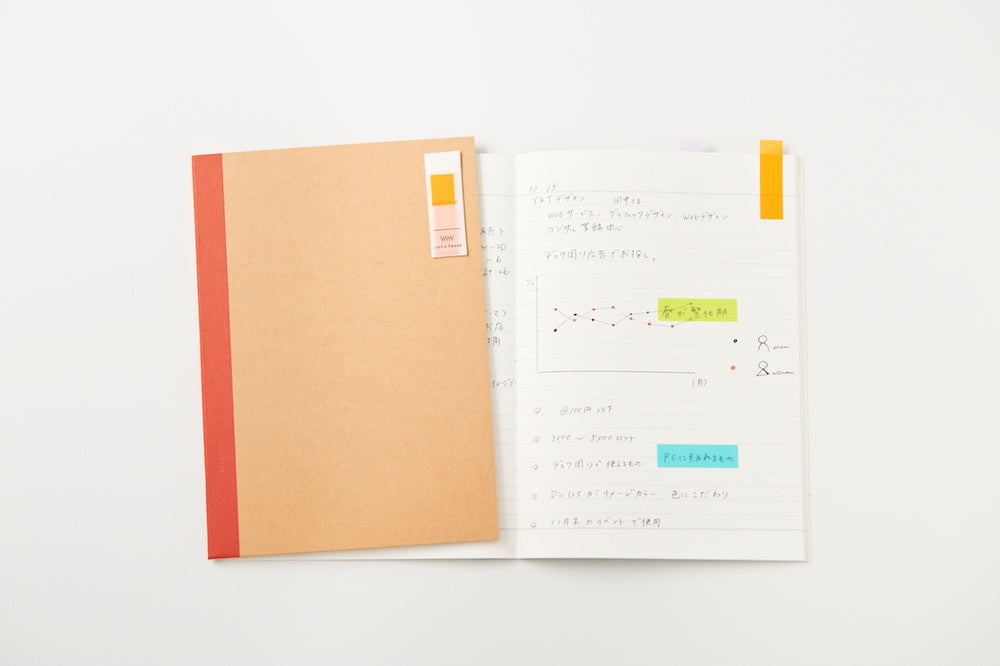 10 15
YKTデザイン 田中さま
Webサービス、グラフィックデザイン、Webデザイン
コンサル業務中心
デスク周り広告でお探し。
春が繁忙期
man
woman
(月)
@100円以下
3000〜5000ロット
デスク周りで使えるもの
PCにはれるもの
Dic115がイメージカラー、色にこだわり
11月末のイベントで使用